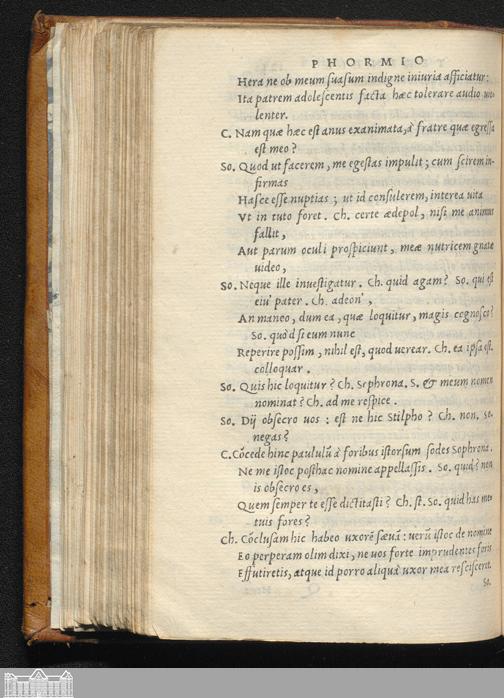 PHORMIO
Hera ne ob meum ſuaſum indigne iniuria afficiatur:
Ita patrem adoleſcentis facta hæc tolerare audio uio
lenter.
C. Nam quæ hæc eſt anus exanimata, à fratre quæ egreſſa
eſt meo?
So. Quod ut facerem, me egeſtas impulit; cum ſcirem in-
firmas
Haſce eſſe nuptias; ut id conſulerem, interea uita
Vt in tuto foret. Ch. certe ædepol, niſi me animus
fallit,
Aut parum oculi proſpiciunt, meæ nutricem gnatæ
uideo,
So. Neque ille inueſtigatur. Ch. quid agam? So. qui eſt
eiu' pater. Ch. adeon',
An maneo, dum ea, quæ loquitur, magis cognoſco?
So. quòd ſi eum nunc
Reperire poſſim, nihil eſt, quod uerear. Ch. ea ipſa eſt.
colloquar.
So. Quis hic loquitur? Ch. Sophrona. S. & meum nomen
nominat? Ch. ad me reſpice.
So. Dij obſecro uos: eſt ne hic Stilpho? Ch. non. So.
negas?
C. Cōcede hinc paululū à foribus iſtorſum ſodes Sophrona.
Ne me iſtoc poſthac nomine appellaſſis. So. quid? non
is obſecro es,
Quem ſemper te eſſe dictitaſti? Ch. ſt. So. quid has me
tuis fores?
Ch. Cōcluſam hic habeo uxorē ſæuā: uerū iſtoc de nomine
Eo perperam olim dixi, ne uos forte imprudentes foris
Effutiretis, atque id porro aliquà uxor mea reſciſceret.
So.